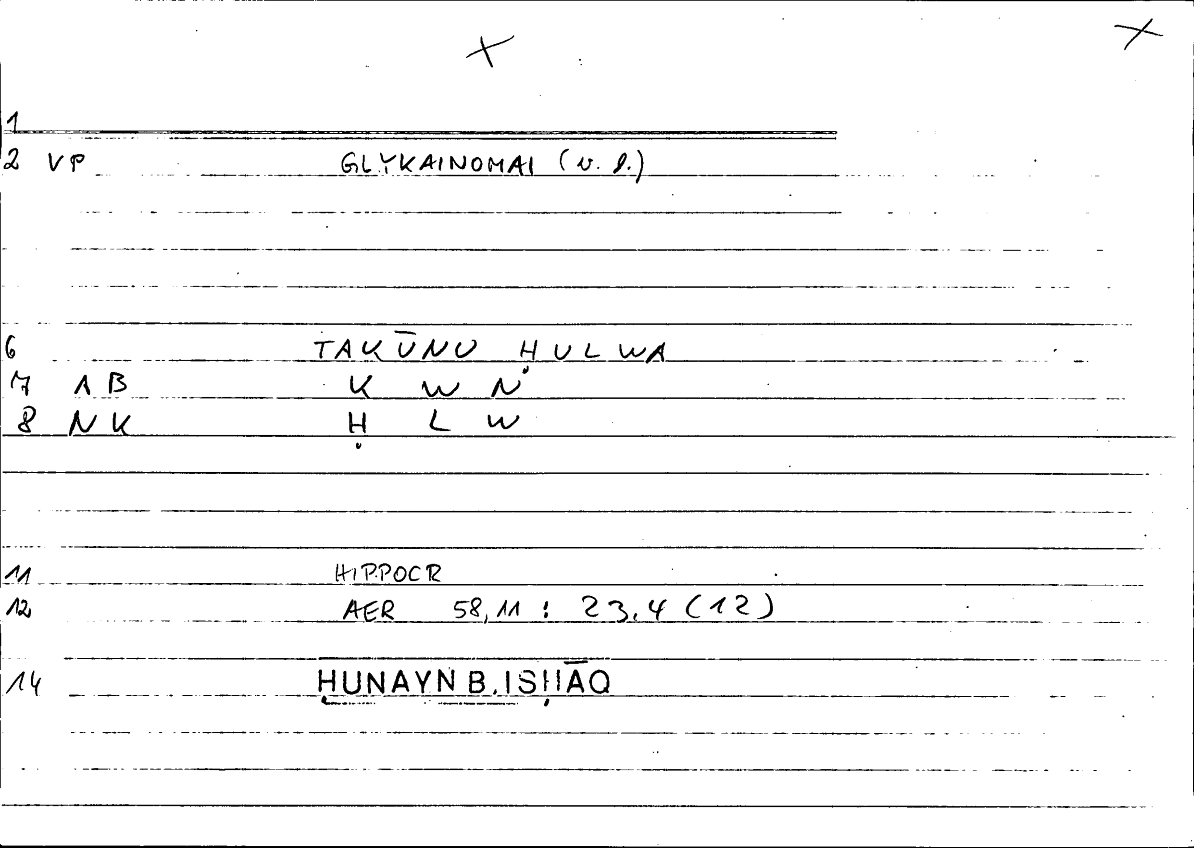 1
2 VP GLYKAINOMAI (v. l.)
6 TAKŪNU ḤULWA
7 AB K W N
8 NK Ḥ L W
11 HIPPOCR
12 AER 58,11 : 23,4 (12)
14 ḤUNAYN B. ISḤĀQ